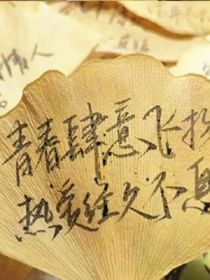 情人
青春肆意飞扬
热爱经久不息